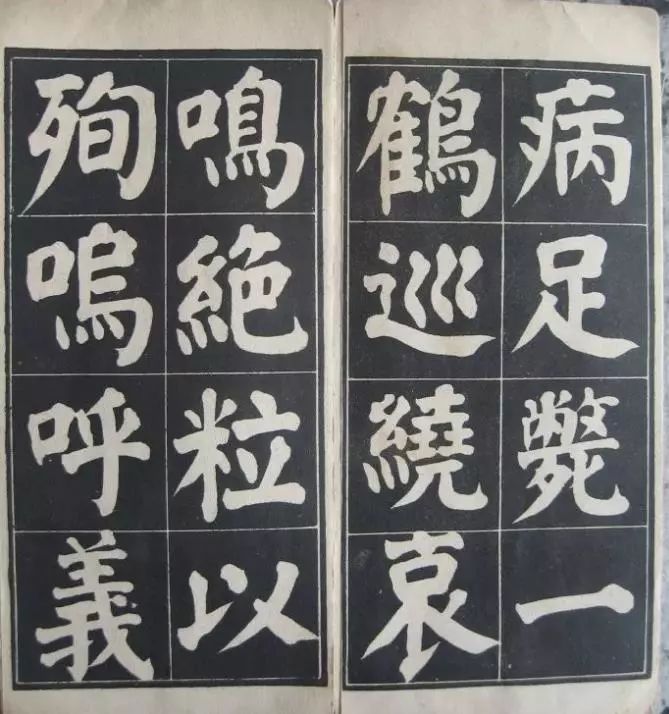 病足斃一
鶴巡繞哀
鳴絕粒以
殉嗚呼義